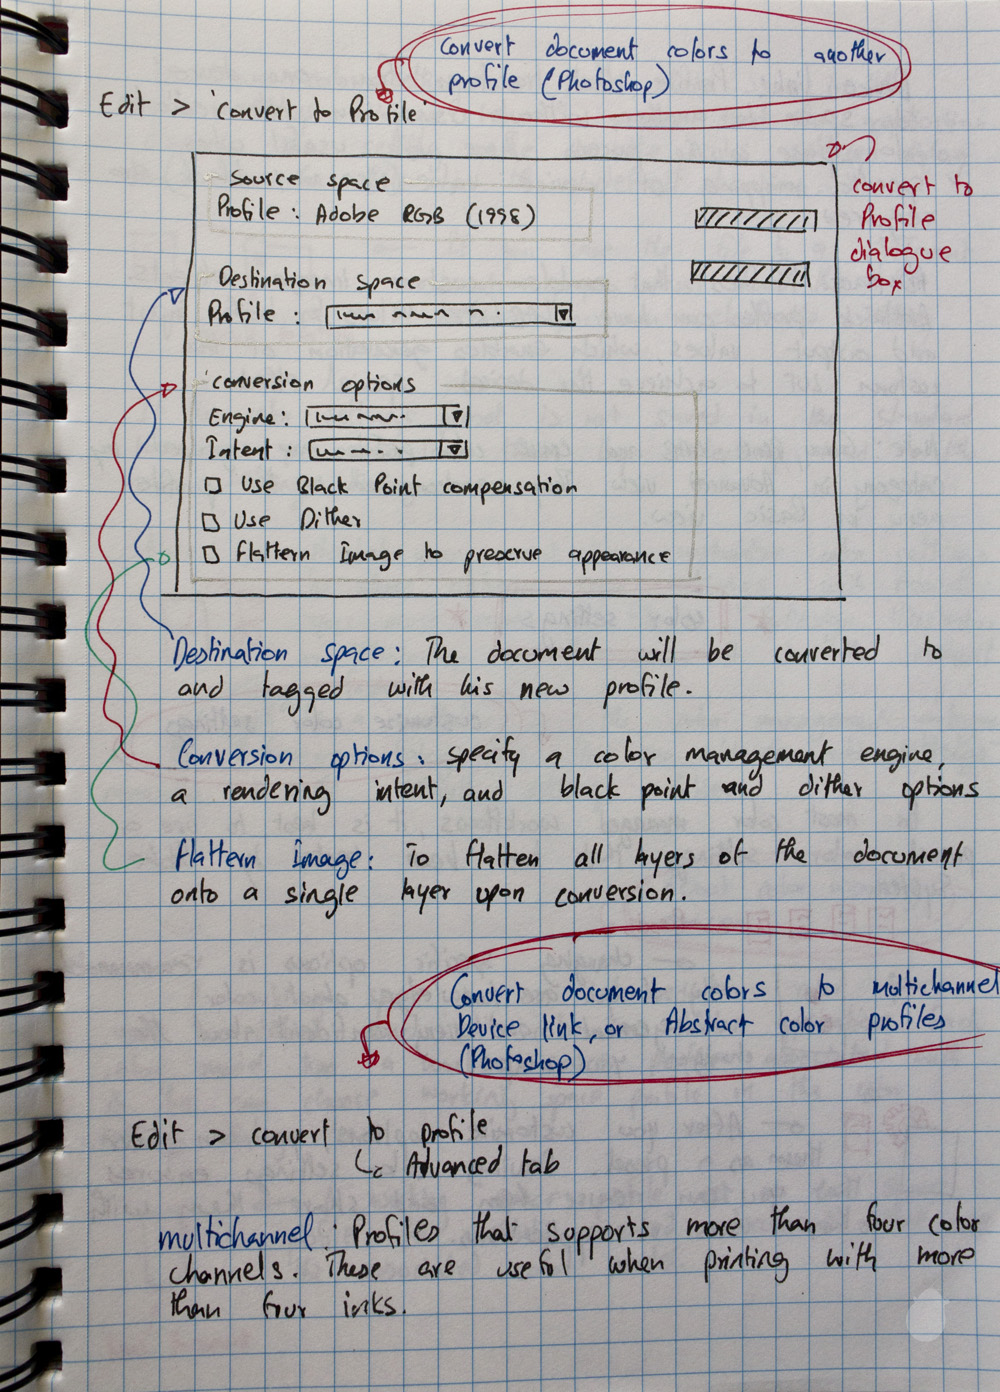 Convert document colors to another
profile (Photoshop)
Edit > 'Convert to Profile'
Source space
Profile : Adobe RGB (1998)
convert to
Profile
dialogue
box
Destination space
Profile :
Conversion options
Engine :
Intent :
Use Black Point compensation
Use Dither
Flattern Image to preserve appearance
Destination space : The document will be converted to
and tagged with his new profile.
Conversion options : specify a color management engine,
a rendering intent, and black point and dither options
Flattern Image : To flatten all layers of the document
onto a single layer upon conversion.
Convert document colors to multichannel
Device link, or Abstract color profiles
(Photoshop)
Edit > convert to profile
Advanced tab
multichannel : Profiles that supports more than four color
channels. These are useful when printing with more
than four inks.